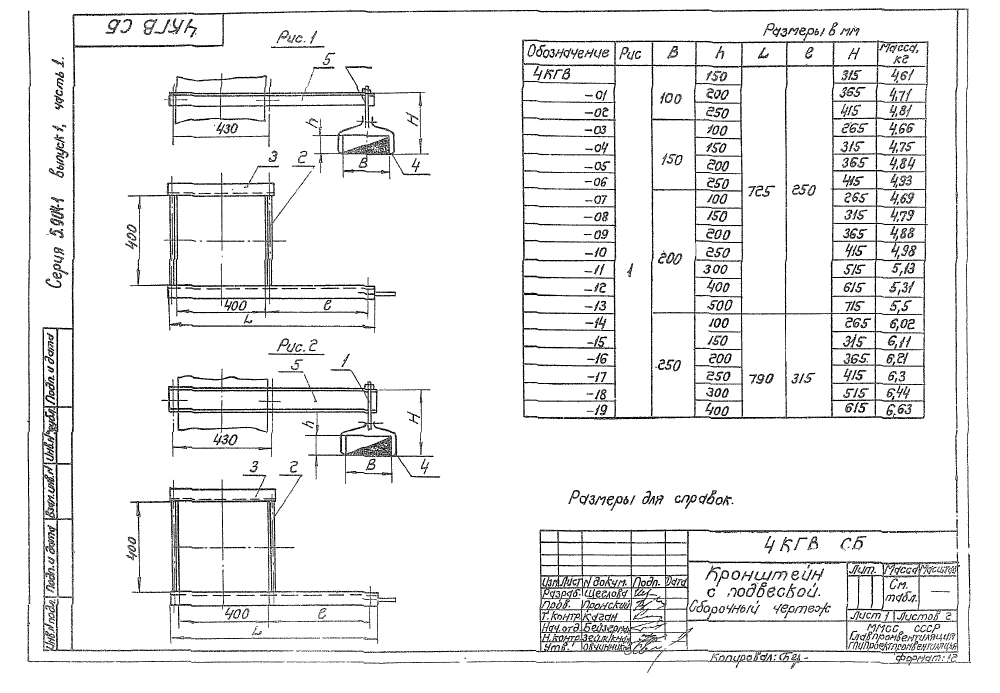 4КГВ СБ
Серия 5.904-1 выпуск 1, часть 1.
Рис. 1
5
430
h
H
B
4
3
2
400
400
e
L
Рис. 2
5
1
430
h
H
B
4
3
2
400
400
e
L
Размеры в мм
Обозначение Рис B h L e H Масса, кг
4КГВ 1 100 150 725 250 315 4,61
-01 200 365 4,71
-02 250 415 4,81
-03 150 100 265 4,66
-04 150 315 4,75
-05 200 365 4,84
-06 250 415 4,93
-07 200 100 265 4,69
-08 150 315 4,79
-09 200 365 4,88
-10 250 415 4,98
-11 300 515 5,13
-12 400 615 5,31
-13 500 715 5,5
-14 250 100 790 315 265 6,02
-15 150 315 6,11
-16 200 365 6,21
-17 250 415 6,3
-18 300 515 6,44
-19 400 615 6,63
Размеры для справок.
4КГВ СБ
Изм Лист N докум. Подп. Дата
Разраб. Щеглова
Пров. Пронский
Т.контр Каган
Нач.отд.
Н.контр
Утв. Овчинников
Кронштейн
с подвеской.
Сборочный чертеж
Лит. Масса Масштаб
См. табл. —
Лист 1 Листов 2
ММСС СССР
Главпромвентиляция
Гипроектпромвентиляция
Копировал:
Формат: 12
Инв.N подл. Подп. и дата Взам.инв.N Инв.N дубл. Подп. и дата